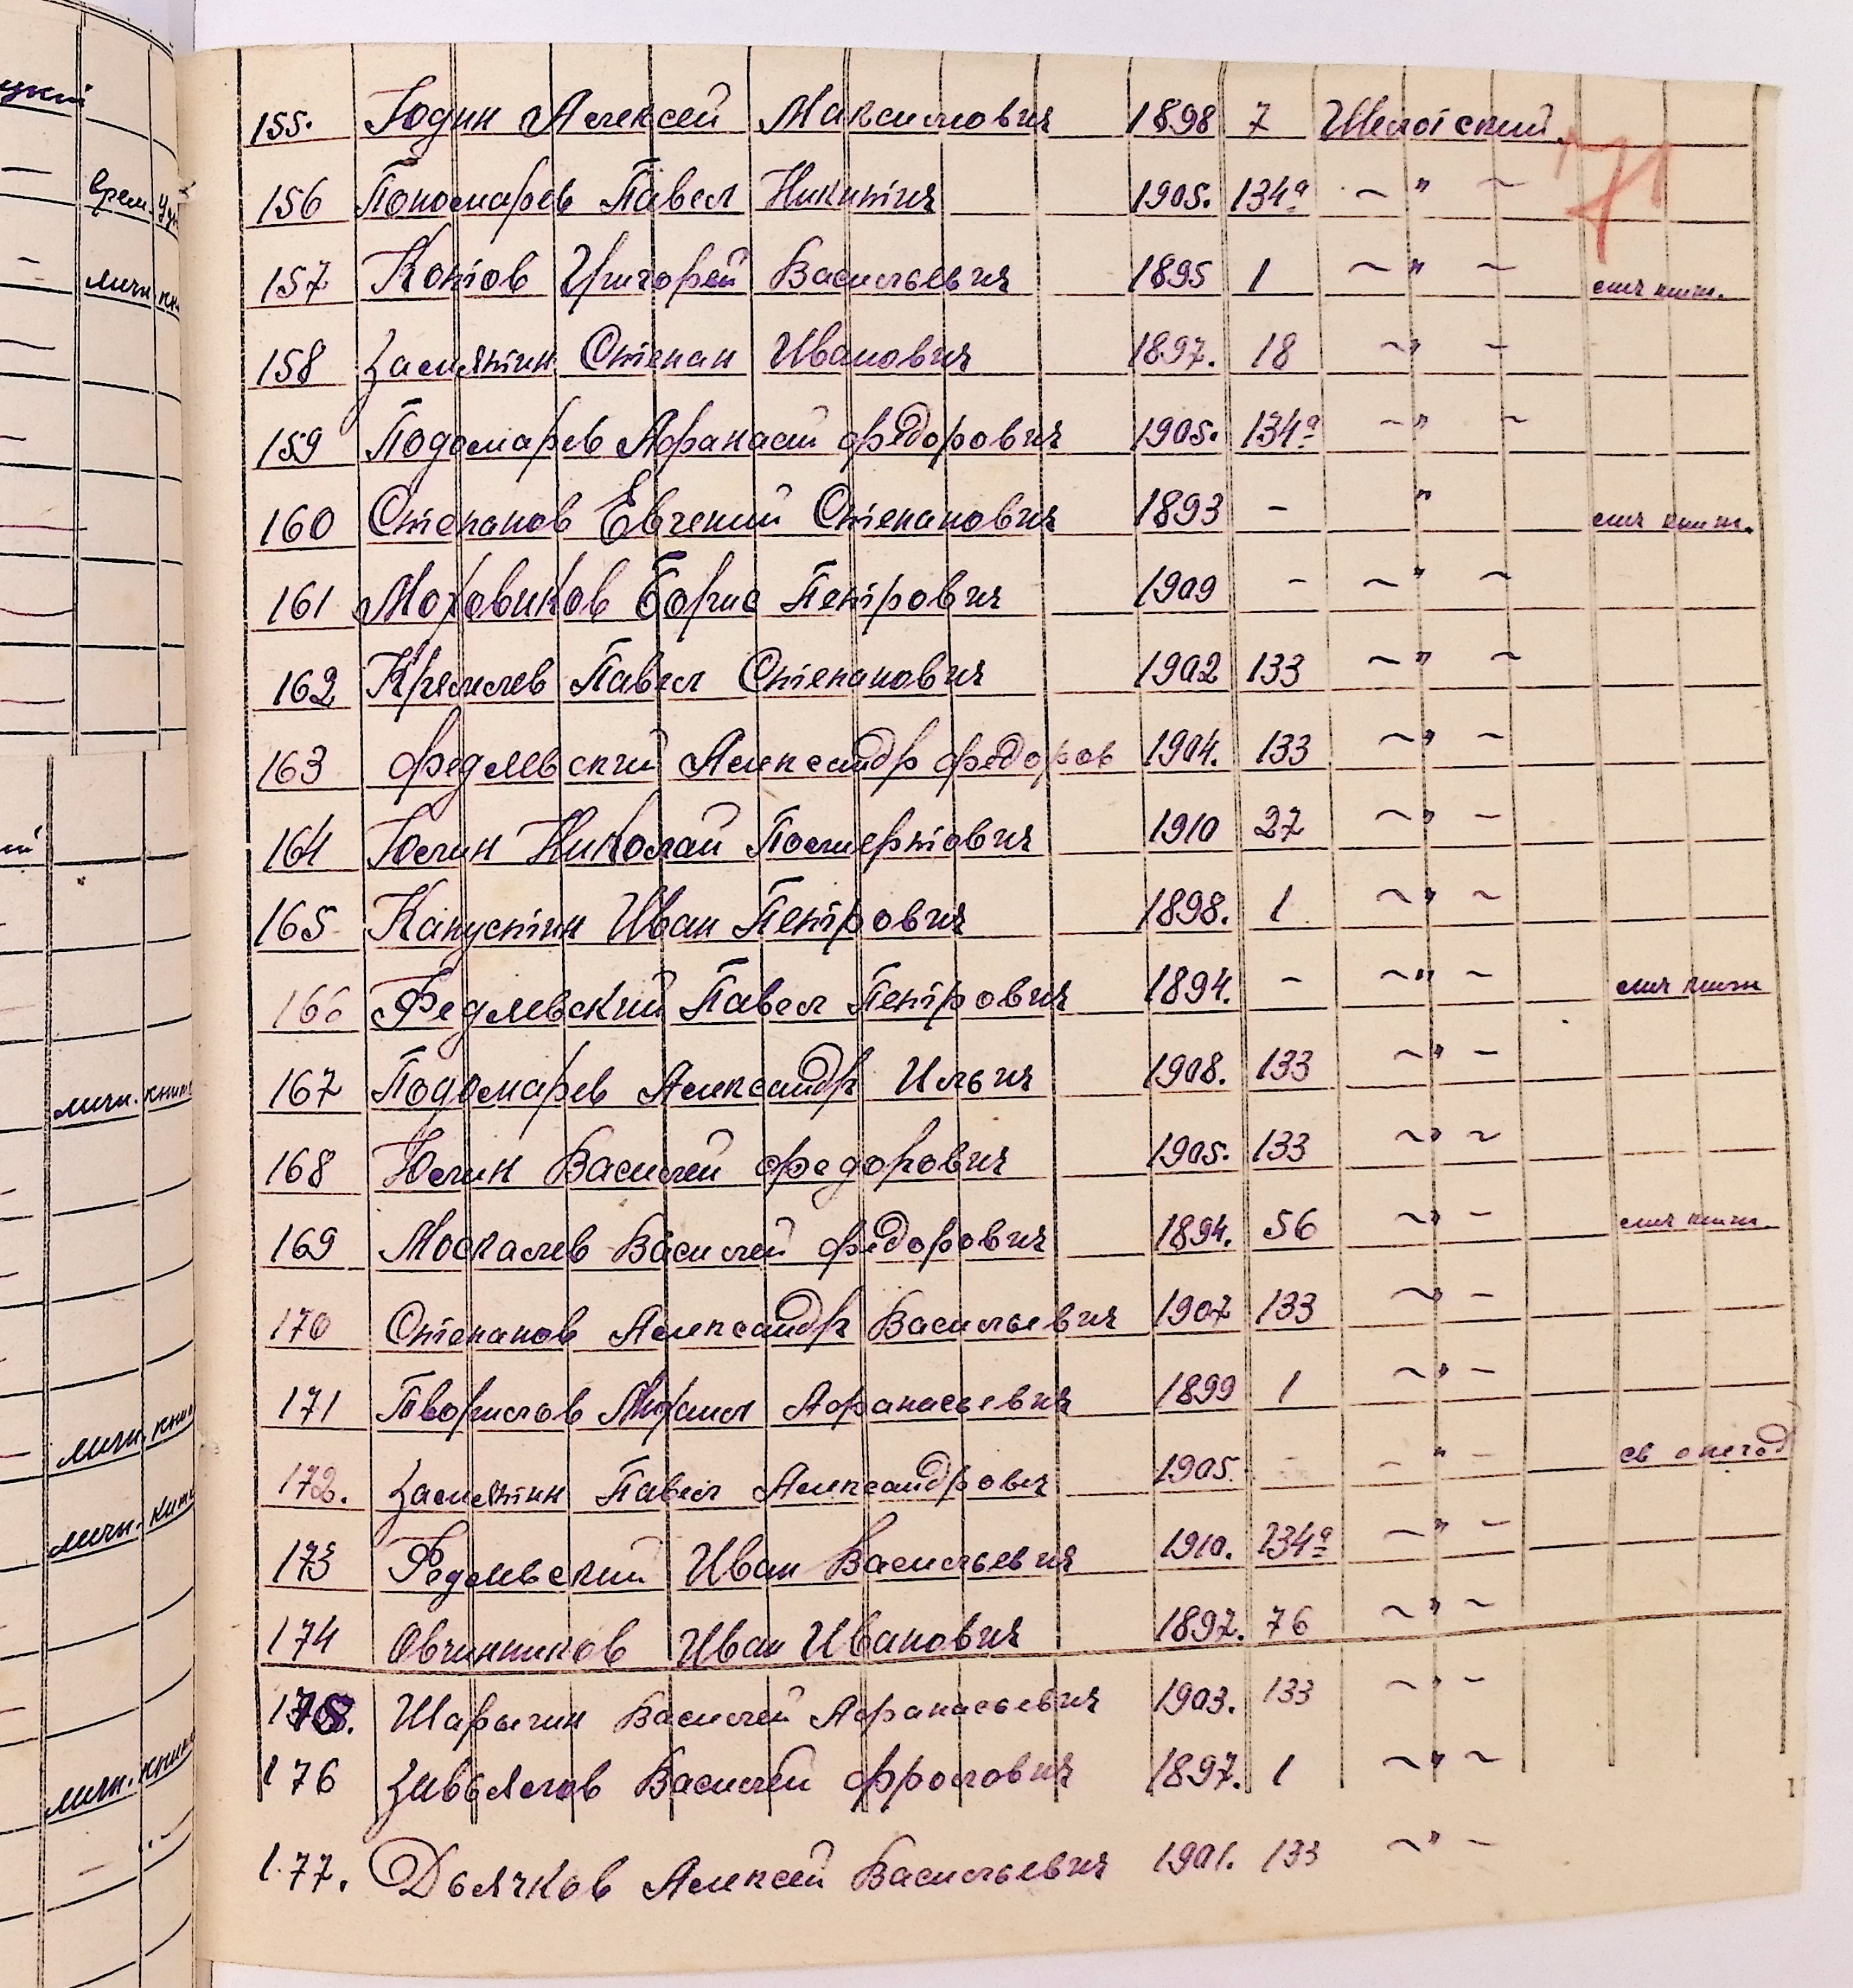 155. Юдин Алексей Максимович 1898 7 71
156 Пономарев Павел Никитич 1905. 134а ~ " ~
157 Котов Григорий Васильевич 1895 1 ~ " ~
158 Замятин Степан Иванович 1897. 18 ~ " ~
159 Подомарев Афанасий Федорович 1905. 134а ~ " ~
160 Степанов Евгений Степанович 1893 - "
161 Моховиков Борис Петрович 1909 - ~ " ~
162 Кремлев Павел Степанович 1902 133 ~ " ~
163 Федяевский Александр Федоров 1904. 133 ~ " ~
164 Юлин Николай Полиефтович 1910 27 ~ " ~
165 Капустин Иван Петрович 1898. 1 ~ " ~
166 Федяевский Павел Петрович 1894. - ~ " ~
167 Подомарев Александр Ильич 1908. 133 ~ " ~
168 Юлин Василий Федорович 1905. 133 ~ " ~
169 Москалев Василий Федорович 1894. 56 ~ " ~
170 Степанов Александр Васильевич 1907 133 ~ " ~
171 Творилов Афанасьевич 1899 1 ~ " ~
172. Замятин Павел Александрович 1905. - - " -
173 Федяевский Иван Васильевич 1910. 134а ~ " ~
174 Овчинников Иван Иванович 1897. 76 ~ " ~
175. Шарыгин Василий Афанасьевич 1903. 133 ~ " ~
176 Завьялов Василий Фролович 1897. 1 ~ " ~
177. Дьячков Алексей Васильевич 1901. 133 ~ " ~